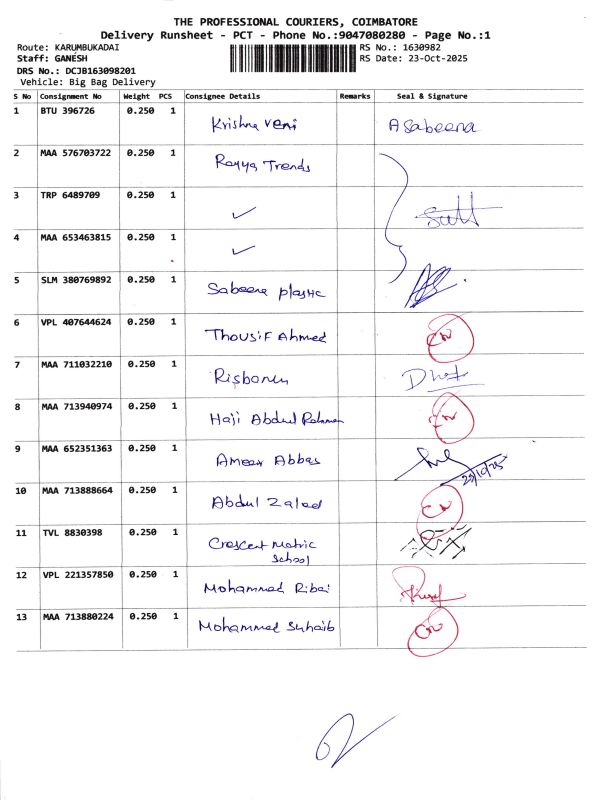 THE PROFESSIONAL COURIERS, COIMBATORE
Delivery Runsheet - PCT - Phone No.:9047080280 - Page No.:1
Route: KARUMBUKADAI RS No.: 1630982
Staff: GANESH RS Date: 23-Oct-2025
DRS No.: DCJB163098201
Vehicle: Big Bag Delivery
S No Consignment No Weight PCS Consignee Details Remarks Seal & Signature
1 BTU 396726 0.250 1 Krishna Veni A Sabeena
2 MAA 576703722 0.250 1 Rayya Trends
3 TRP 6489709 0.250 1 ✓
4 MAA 653463815 0.250 1 ✓
5 SLM 380769892 0.250 1 Sabeena plastic
6 VPL 407644624 0.250 1 Thousif Ahmed CN
7 MAA 711032210 0.250 1
8 MAA 713940974 0.250 1 Haji Abdul Rahman CN
9 MAA 652351363 0.250 1 Ameer Abbas 23/10/25
10 MAA 713888664 0.250 1 Abdul Zaled CN
11 TVL 8830398 0.250 1 Crescent Matric
School
12 VPL 221357850 0.250 1 Mohammed Ribai
13 MAA 713880224 0.250 1 Mohammed Suhaib CN